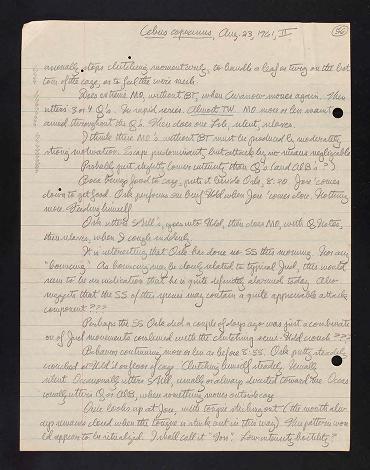 Cebus capucinus, Aug. 23, 1961, II
56
anorally stops clutching momentarily, to handle a leaf or twig on the bot
tom of the cage, or to feel the wire mesh.
Does extreme MO, without BT, when Cananow moves again. Then
utters 3 or 4 Q's. In rapid series. Almost TW. MO more or less maint
ained throughout the Q's. Then does one Lob, silent, relaxes.
I think these MO's without BT must be produced by moderately
strong motivation. Escape predominant, but attack by no means negligible
Probably just slightly lower intensity than Q's (and OLB's?)
Boca brings food to cage, puts it beside Oslo, 8:20. Joe comes
down to get food. Oslo performs one brief Hold when Joe comes close. Nothing
more. Feeding himself.
Oslo utters Shill's, goes into Hold, then does MO, with Q Notes,
then relaxes, when I cough suddenly.
It is interesting that Oslo has done no SS this morning. Nor any
"bouncing". As bouncing may be closely related to typical Jud, this would
seem to be an indication that he is quite definitely alarmed today. Also
suggests that the SS of this species may contain a quite appreciable attack
component ???
Perhaps the SS Oslo did a couple of days ago was just a combinatio
n of Jud movements combined with the clutching semi-Hold crouch ???
Behavior continuing more or less as before 8:55. Oslo quite steadily
crouched in Hold in corner of cage. Clutching himself steadily. Usually
silent. Occasionally utters Shill, usually or always directed toward me. Occas
ionally utters Q or OLB, when something moves outside cage.
One looks up at Joe, with tongue sticking out (the mouth alw
ays remains closed when the tongue is stuck out in this way). This pattern wou
ld appear to be ritualized. I shall call it "Ton". Low intensity hostility?